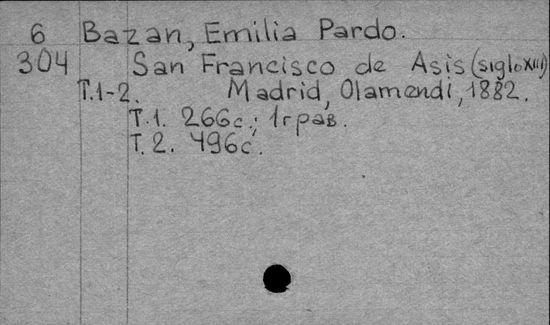 6 Bazan, Emilia Pardo.
304 San Francisco de Asis (siglo XIII)
Т.1-2. Madrid, Olamendi, 1882.
Т.1. 266с.; 1грав.
Т.2. 496с.